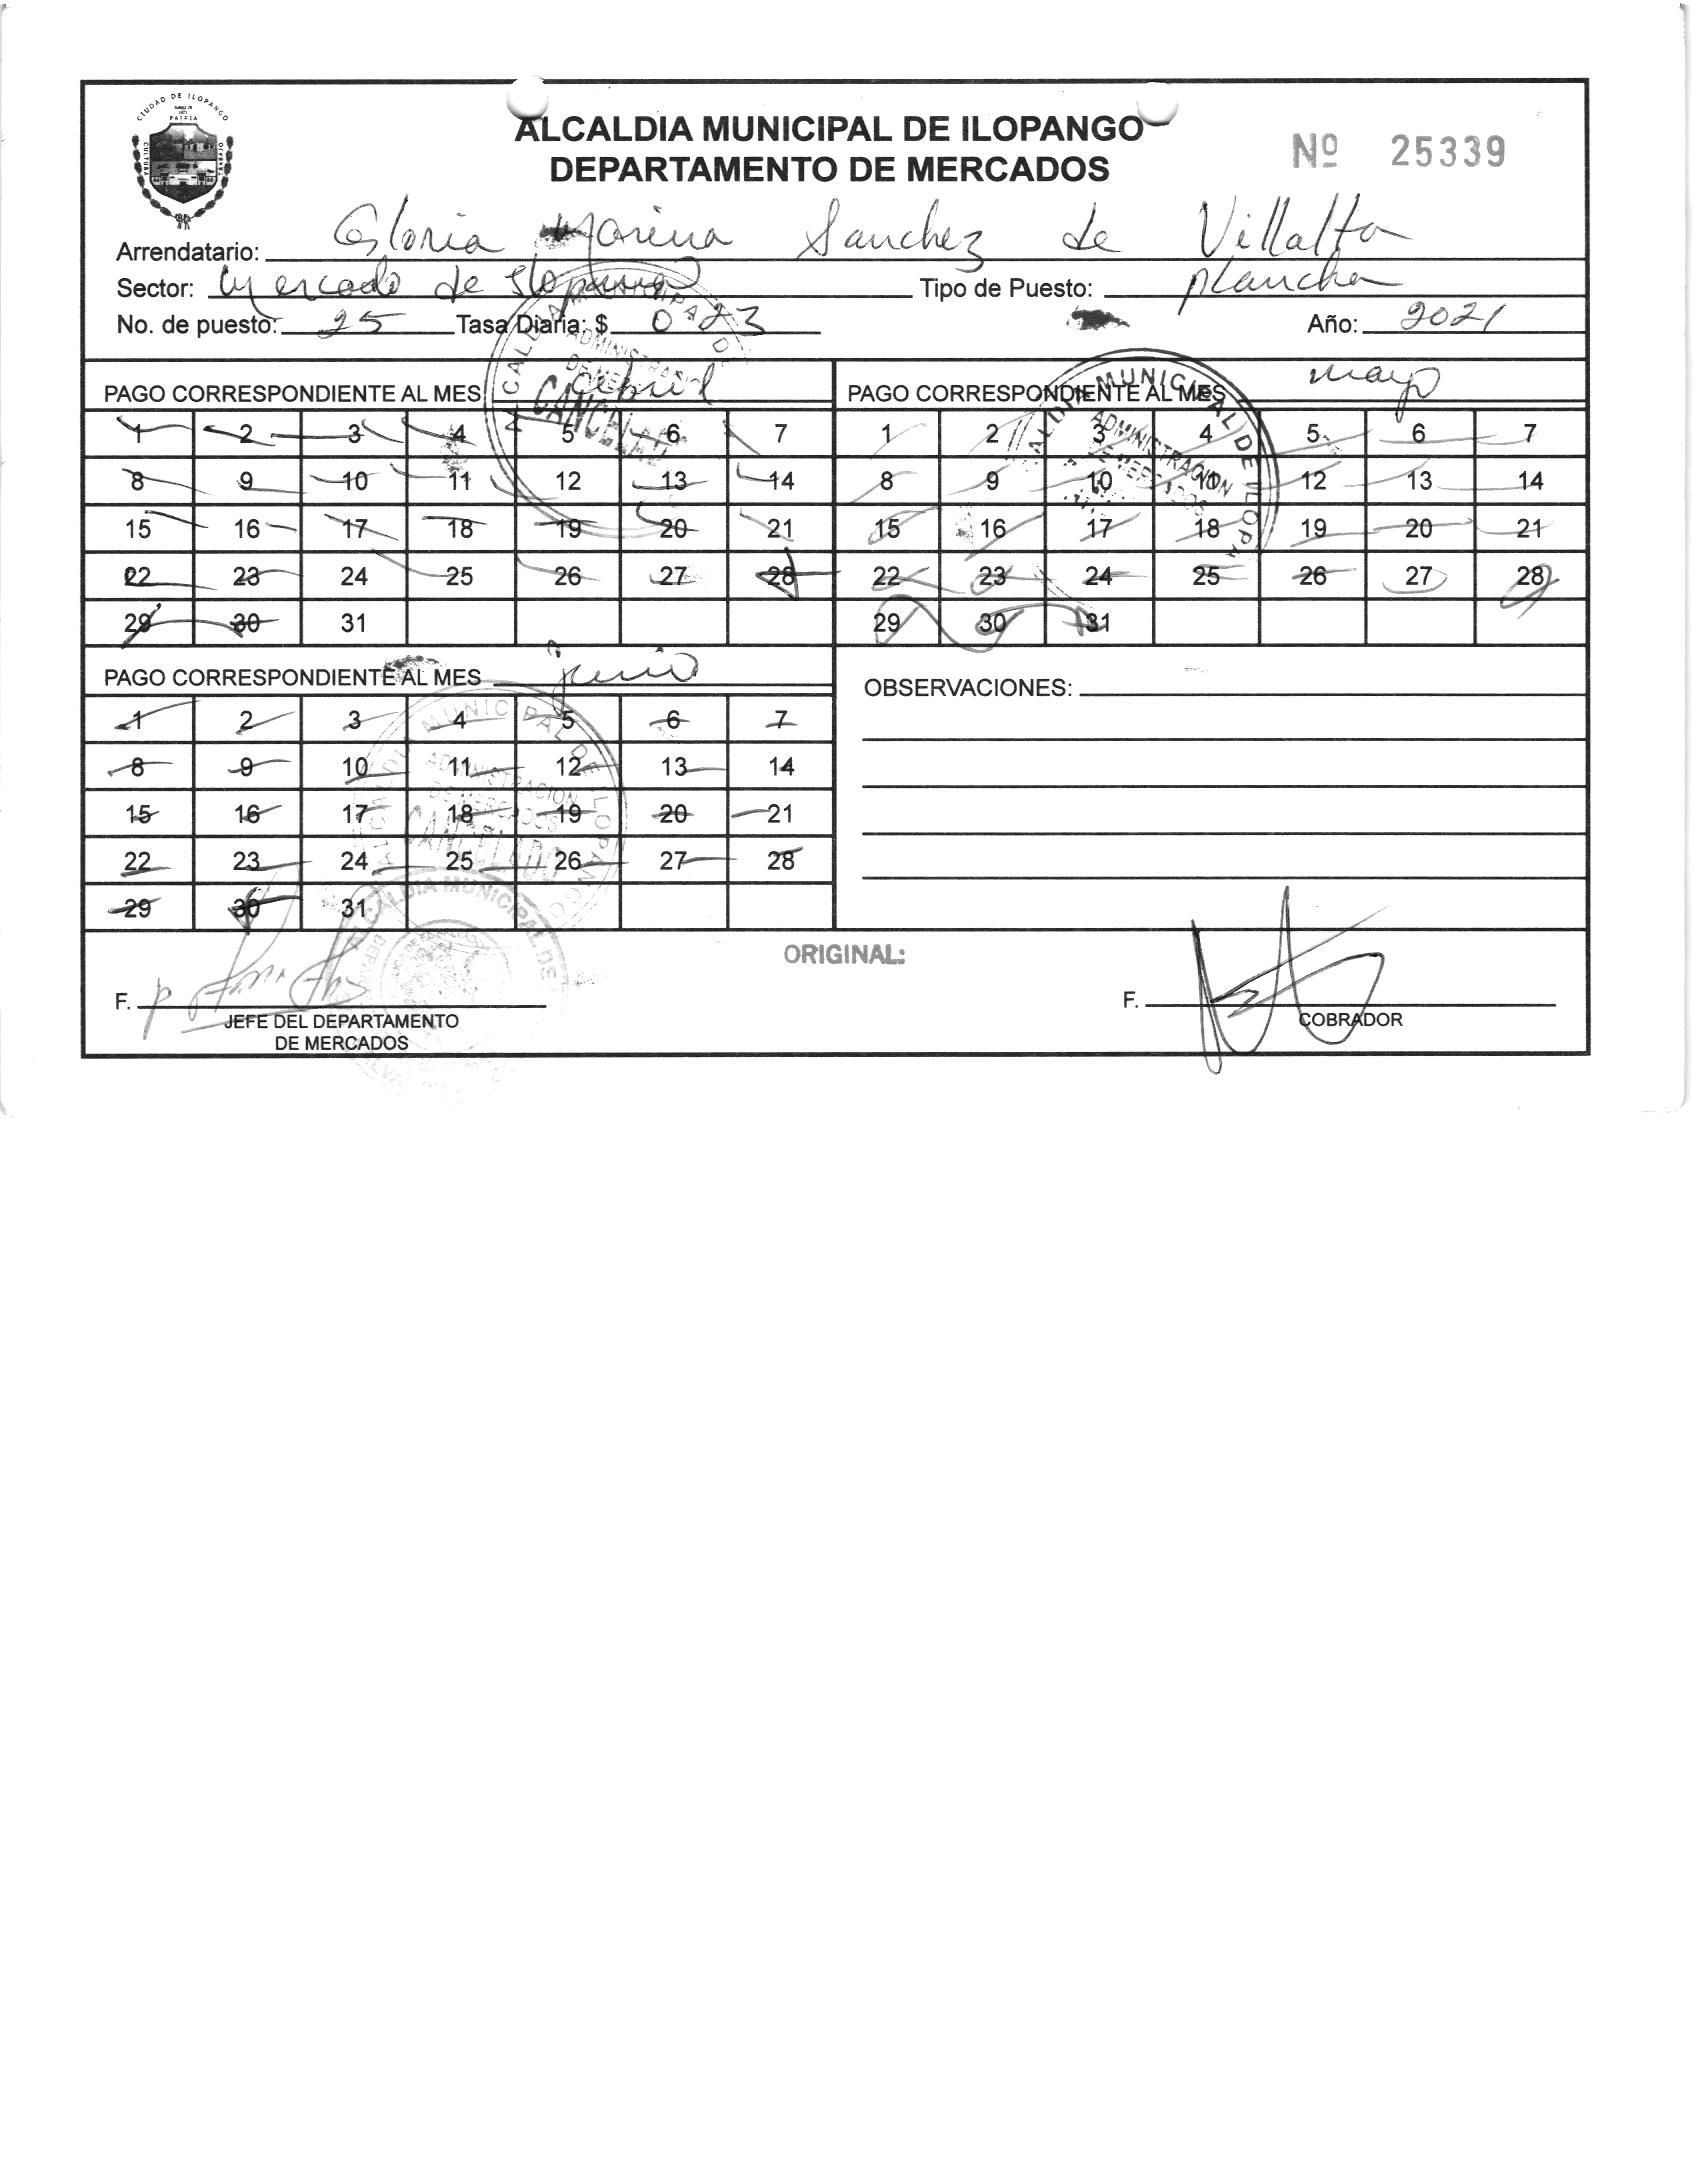 CIUDAD DE ILOPANGO
PATRIA
CULTURA
TRABAJO
ALCALDIA MUNICIPAL DE ILOPANGO
DEPARTAMENTO DE MERCADOS
Nº 25339
Arrendatario: Gloria Marina Sanchez de Villalta
Sector: Mercado de Ilopango Tipo de Puesto: plancha
No. de puesto: 25 Tasa Diaria: $ 0.23 Año: 2021
PAGO CORRESPONDIENTE AL MES abril
1 2 3 4 5 6 7
8 9 10 11 12 13 14
15 16 17 18 19 20 21
22 23 24 25 26 27 28
29 30 31
ADMINISTRACION
CANCELADO
PAGO CORRESPONDIENTE AL MES mayo
1 2 3 4 5 6 7
8 9 10 11 12 13 14
15 16 17 18 19 20 21
22 23 24 25 26 27 28
29 30 31
ALDIA MUNICIPAL DE ILOPA
ADMINISTRACION
DE MERCADOS
PAGO CORRESPONDIENTE AL MES junio
1 2 3 4 5 6 7
8 9 10 11 12 13 14
15 16 17 18 19 20 21
22 23 24 25 26 27 28
29 30 31
ALCALDIA MUNICIPAL DE ILOPANGO
ADMINISTRACION
DE MERCADOS
CANCELADO
OBSERVACIONES:
ORIGINAL:
ALCALDIA MUNICIPAL DE
F.
JEFE DEL DEPARTAMENTO
DE MERCADOS
F.
COBRADOR